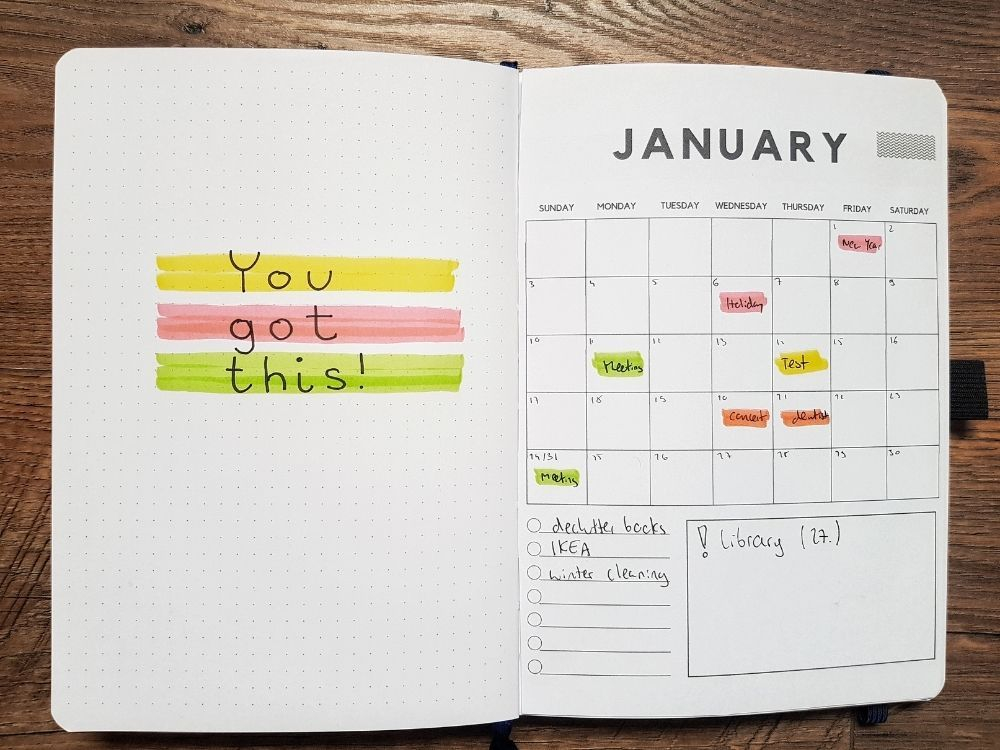 You
got
this!
JANUARY
SUNDAY MONDAY TUESDAY WEDNESDAY THURSDAY FRIDAY SATURDAY
1 2
New Year
3 4 5 6 7 8 9
Holiday
10 11 13 15 16
Meeting Test
17 18 19 20 21 23
concert dentist
24/31 25 26 27 28 29 30
Meeting
declutter books
IKEA
winter cleaning
! library (27.)